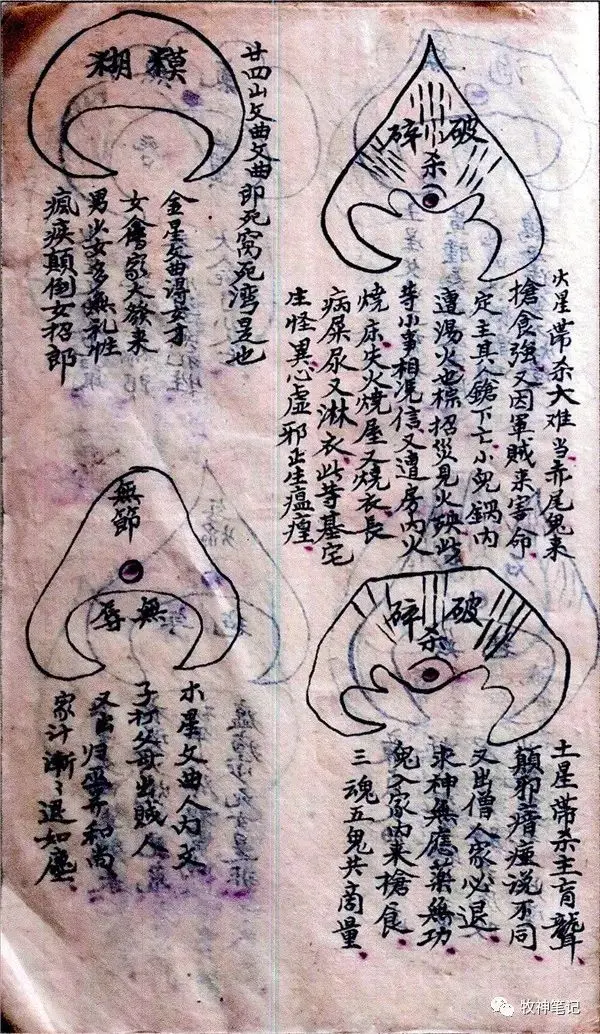 破碎
杀
火星帶杀大难当赤尾鬼来
搶食強又因軍賊来害命
定主其人鎗下亡小兒鍋內
遭湯火也标招災見火殃此
等小事相混信又遭房內火
燒床失火燒屋又燒衣長
病屎尿又淋衣此等基宅
生怪異心虛邪正生瘟
破碎
杀
土星帶杀主盲聾
顛邪瘖瘂说不同
又出僧人家必退
求神無應藥無功
鬼入家內来搶食
三魂五鬼共商量
廿四山文曲文曲即死窝死湾是也
模糊
金星文曲淂女才
女會家大發来
男少女多無礼性
瘋疾顛倒女招郎
無節
無辱
木星文曲人內文
子父母出賊人
又出归和尚
家計漸々退如塵
牧神笔记